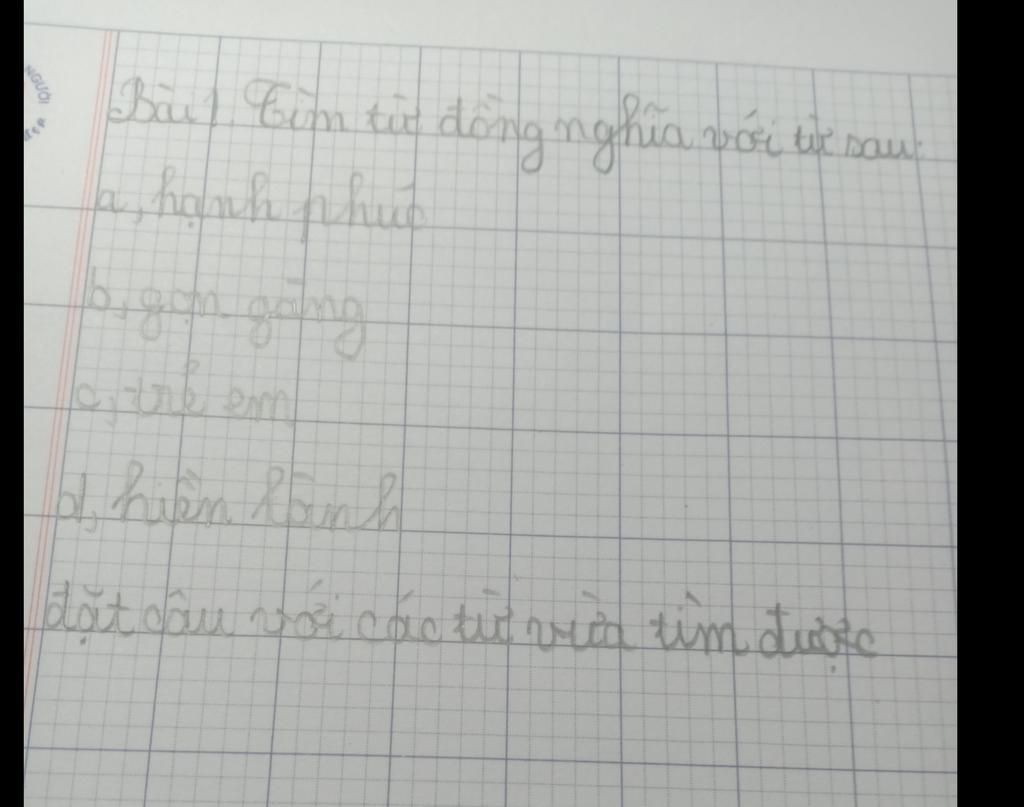 NGƯỜI
Bài 1 Tìm từ đồng nghĩa với từ sau:
a, hạnh phúc
b, gọn gàng
c, trẻ em
d, hiền lành
đặt câu với các từ vừa tìm được